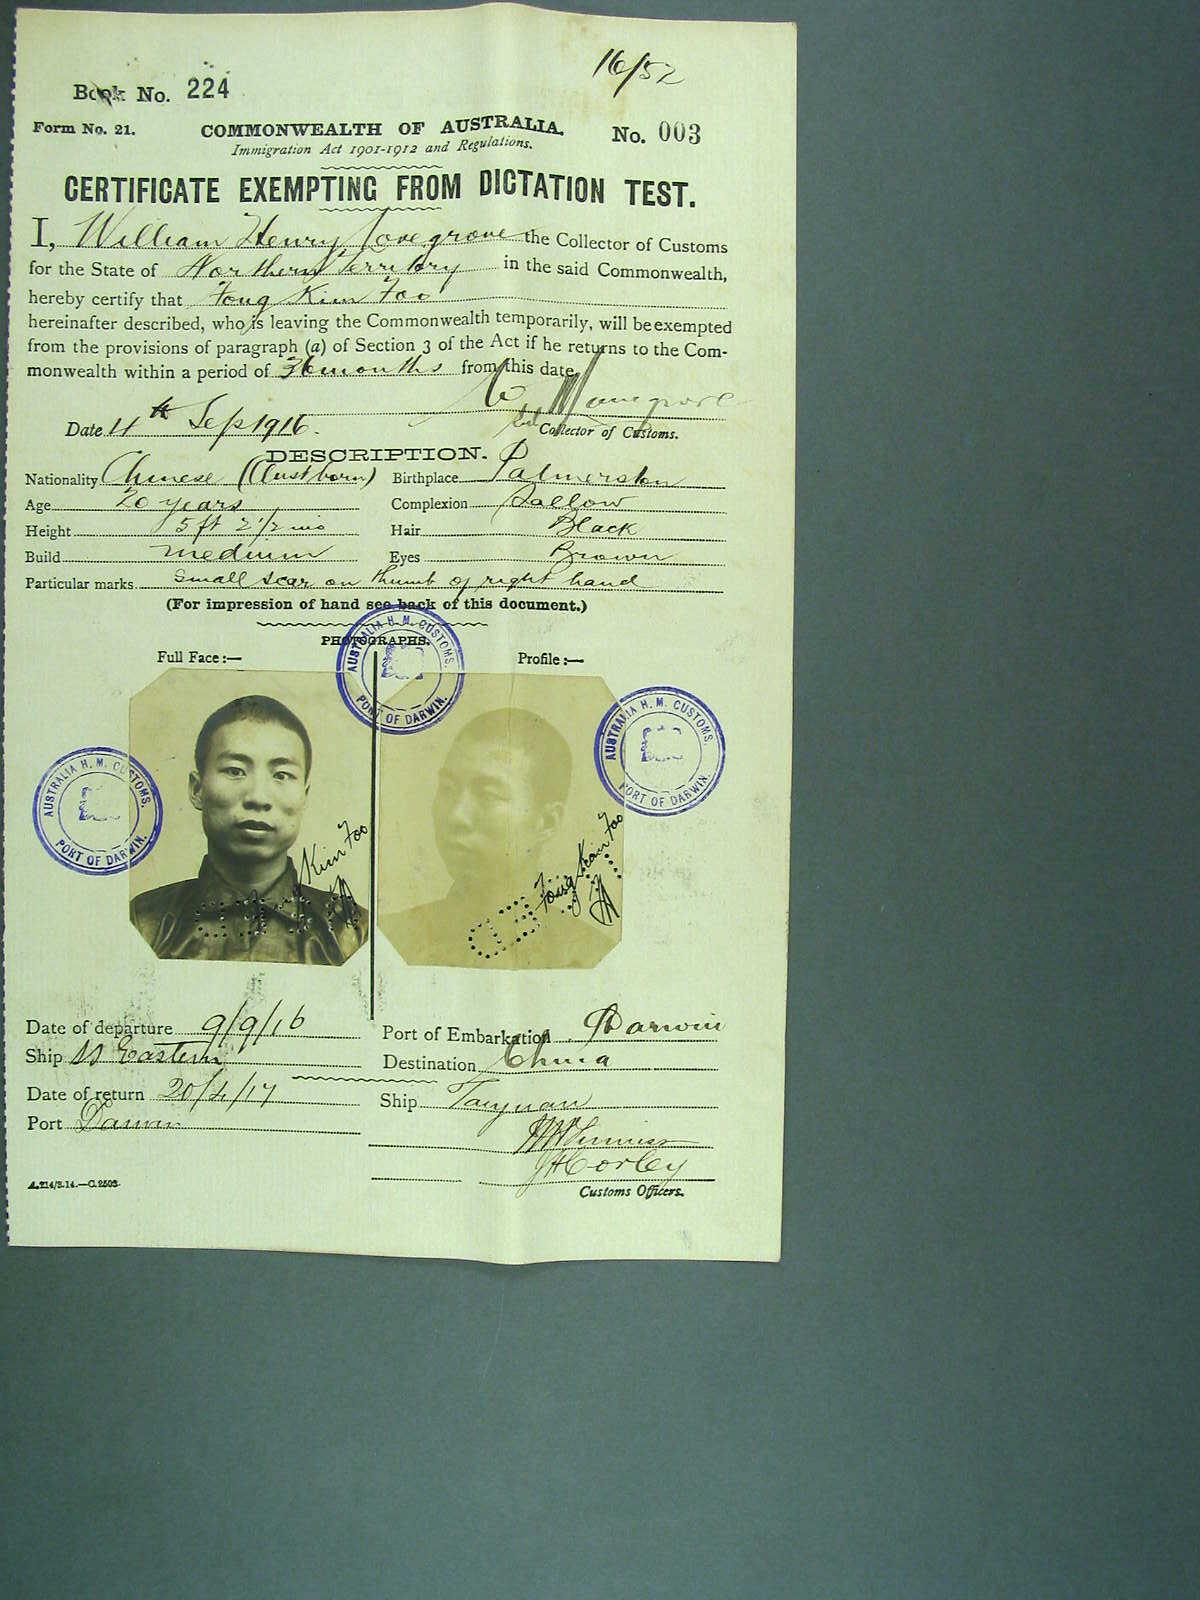 16/52
Book No. 224
Form No. 21. COMMONWEALTH OF AUSTRALIA. No. 003
Immigration Act 1901-1912 and Regulations.
CERTIFICATE EXEMPTING FROM DICTATION TEST.
I, William Henry Lovegrove the Collector of Customs
for the State of Northern Territory in the said Commonwealth,
hereby certify that Fong Kim Foo
hereinafter described, who is leaving the Commonwealth temporarily, will be exempted
from the provisions of paragraph (a) of Section 3 of the Act if he returns to the Com-
monwealth within a period of 36 months from this date.
Date 4th Sep 1916.
Collector of Customs.
DESCRIPTION.
Nationality Chinese (Aust born) Birthplace Palmerston
Age 20 years Complexion Sallow
Height 5 ft 2 1/2 ins Hair Black
Build medium Eyes Brown
Particular marks small scar on thumb of right hand
(For impression of hand see back of this document.)
PHOTOGRAPHS.
Full Face:— Profile:—
AUSTRALIA H. M. CUSTOMS.
PORT OF DARWIN.
AUSTRALIA H. M. CUSTOMS.
PORT OF DARWIN.
AUSTRALIA H. M. CUSTOMS.
PORT OF DARWIN.
Kim Foo
Fong Kim Foo
Date of departure 9/9/16 Port of Embarkation Darwin
Ship SS Eastern Destination China
Date of return 20/4/17 Ship Taiyuan
Port Darwin
Corley
Customs Officers.
A.214/3.14.—C.2503